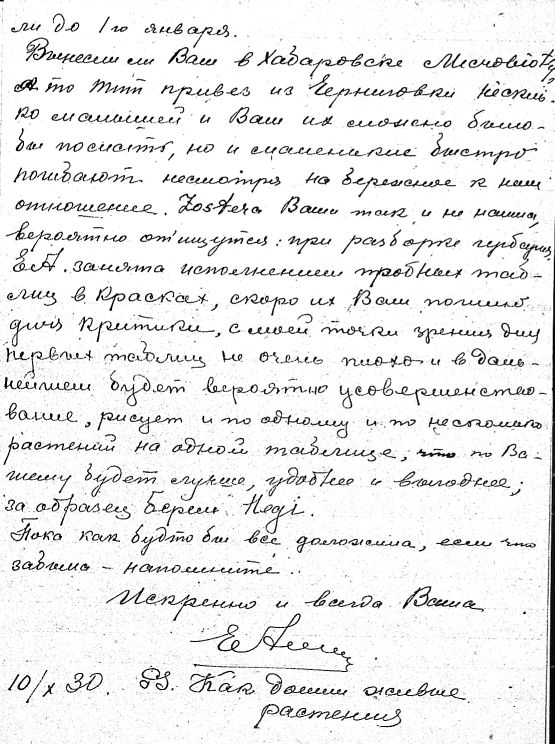 ли до 1го января.
Вынесли ли Вам в Хабаровске
а то привез из Черниговки несколь-
ко малышей и Вам их можно было-
бы послать, но и маленькие быстро
погибают несмотря на бережное к ним
отношение. Zostera Вашу так и не нашла,
вероятно отыщутся при разборке гербария.
Е.А. занята исполнением пробных таб-
лиц в красках, скоро их Вам пошлю
для критики, с моей точки зрения для
первых таблиц не очень плохо и в даль-
нейшем будет вероятно усовершенство-
вание, рисует и по одному и по несколько
растений на одной таблице, что по Ва-
шему будет лучше, удобнее и выгоднее;
за образец берем Hegi.
Пока как будто бы все доложила, если что
забыла - напомните.
Искренно и всегда Ваша
10/X 30. PS. Как дошли живые
растения